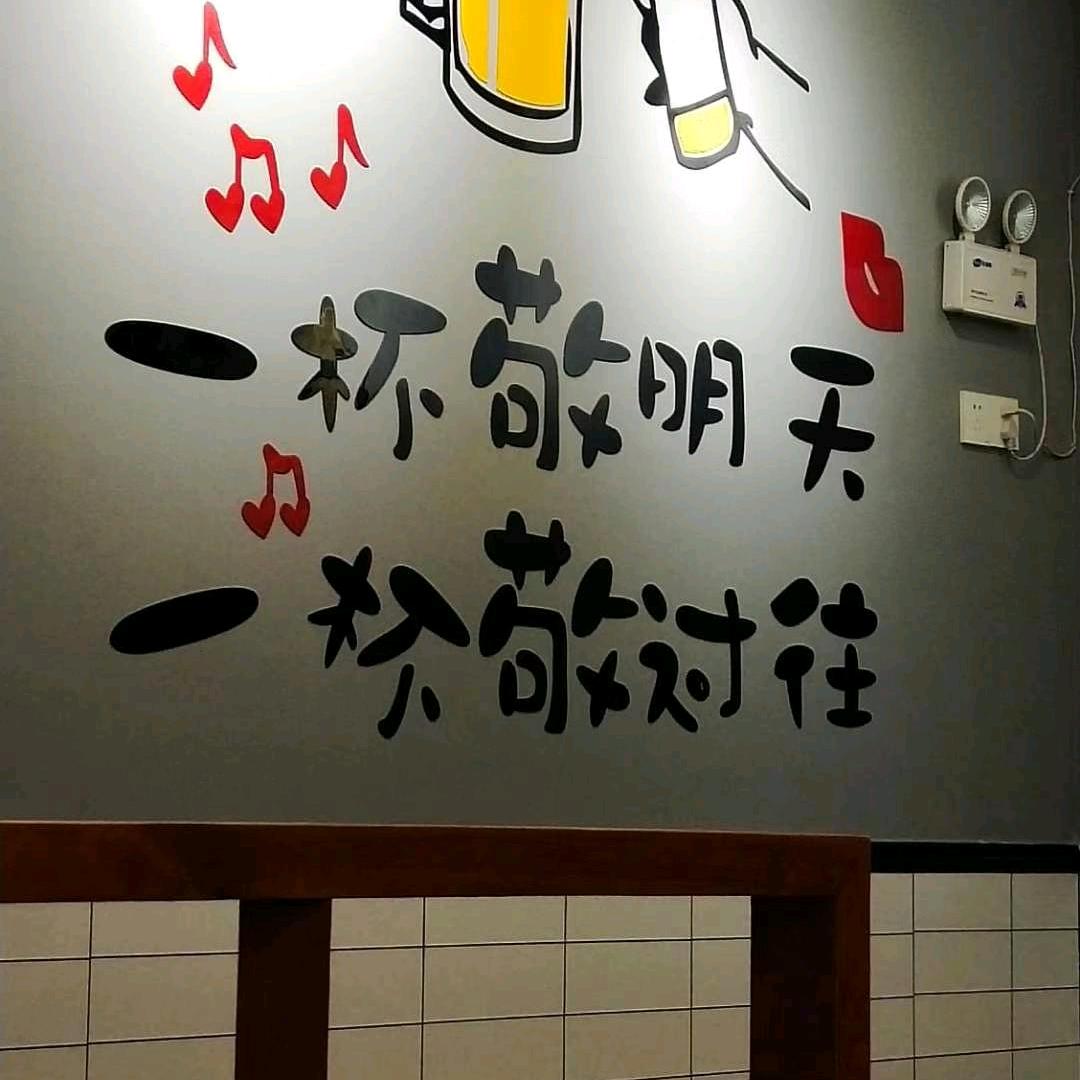 一杯敬明天
一杯敬过往